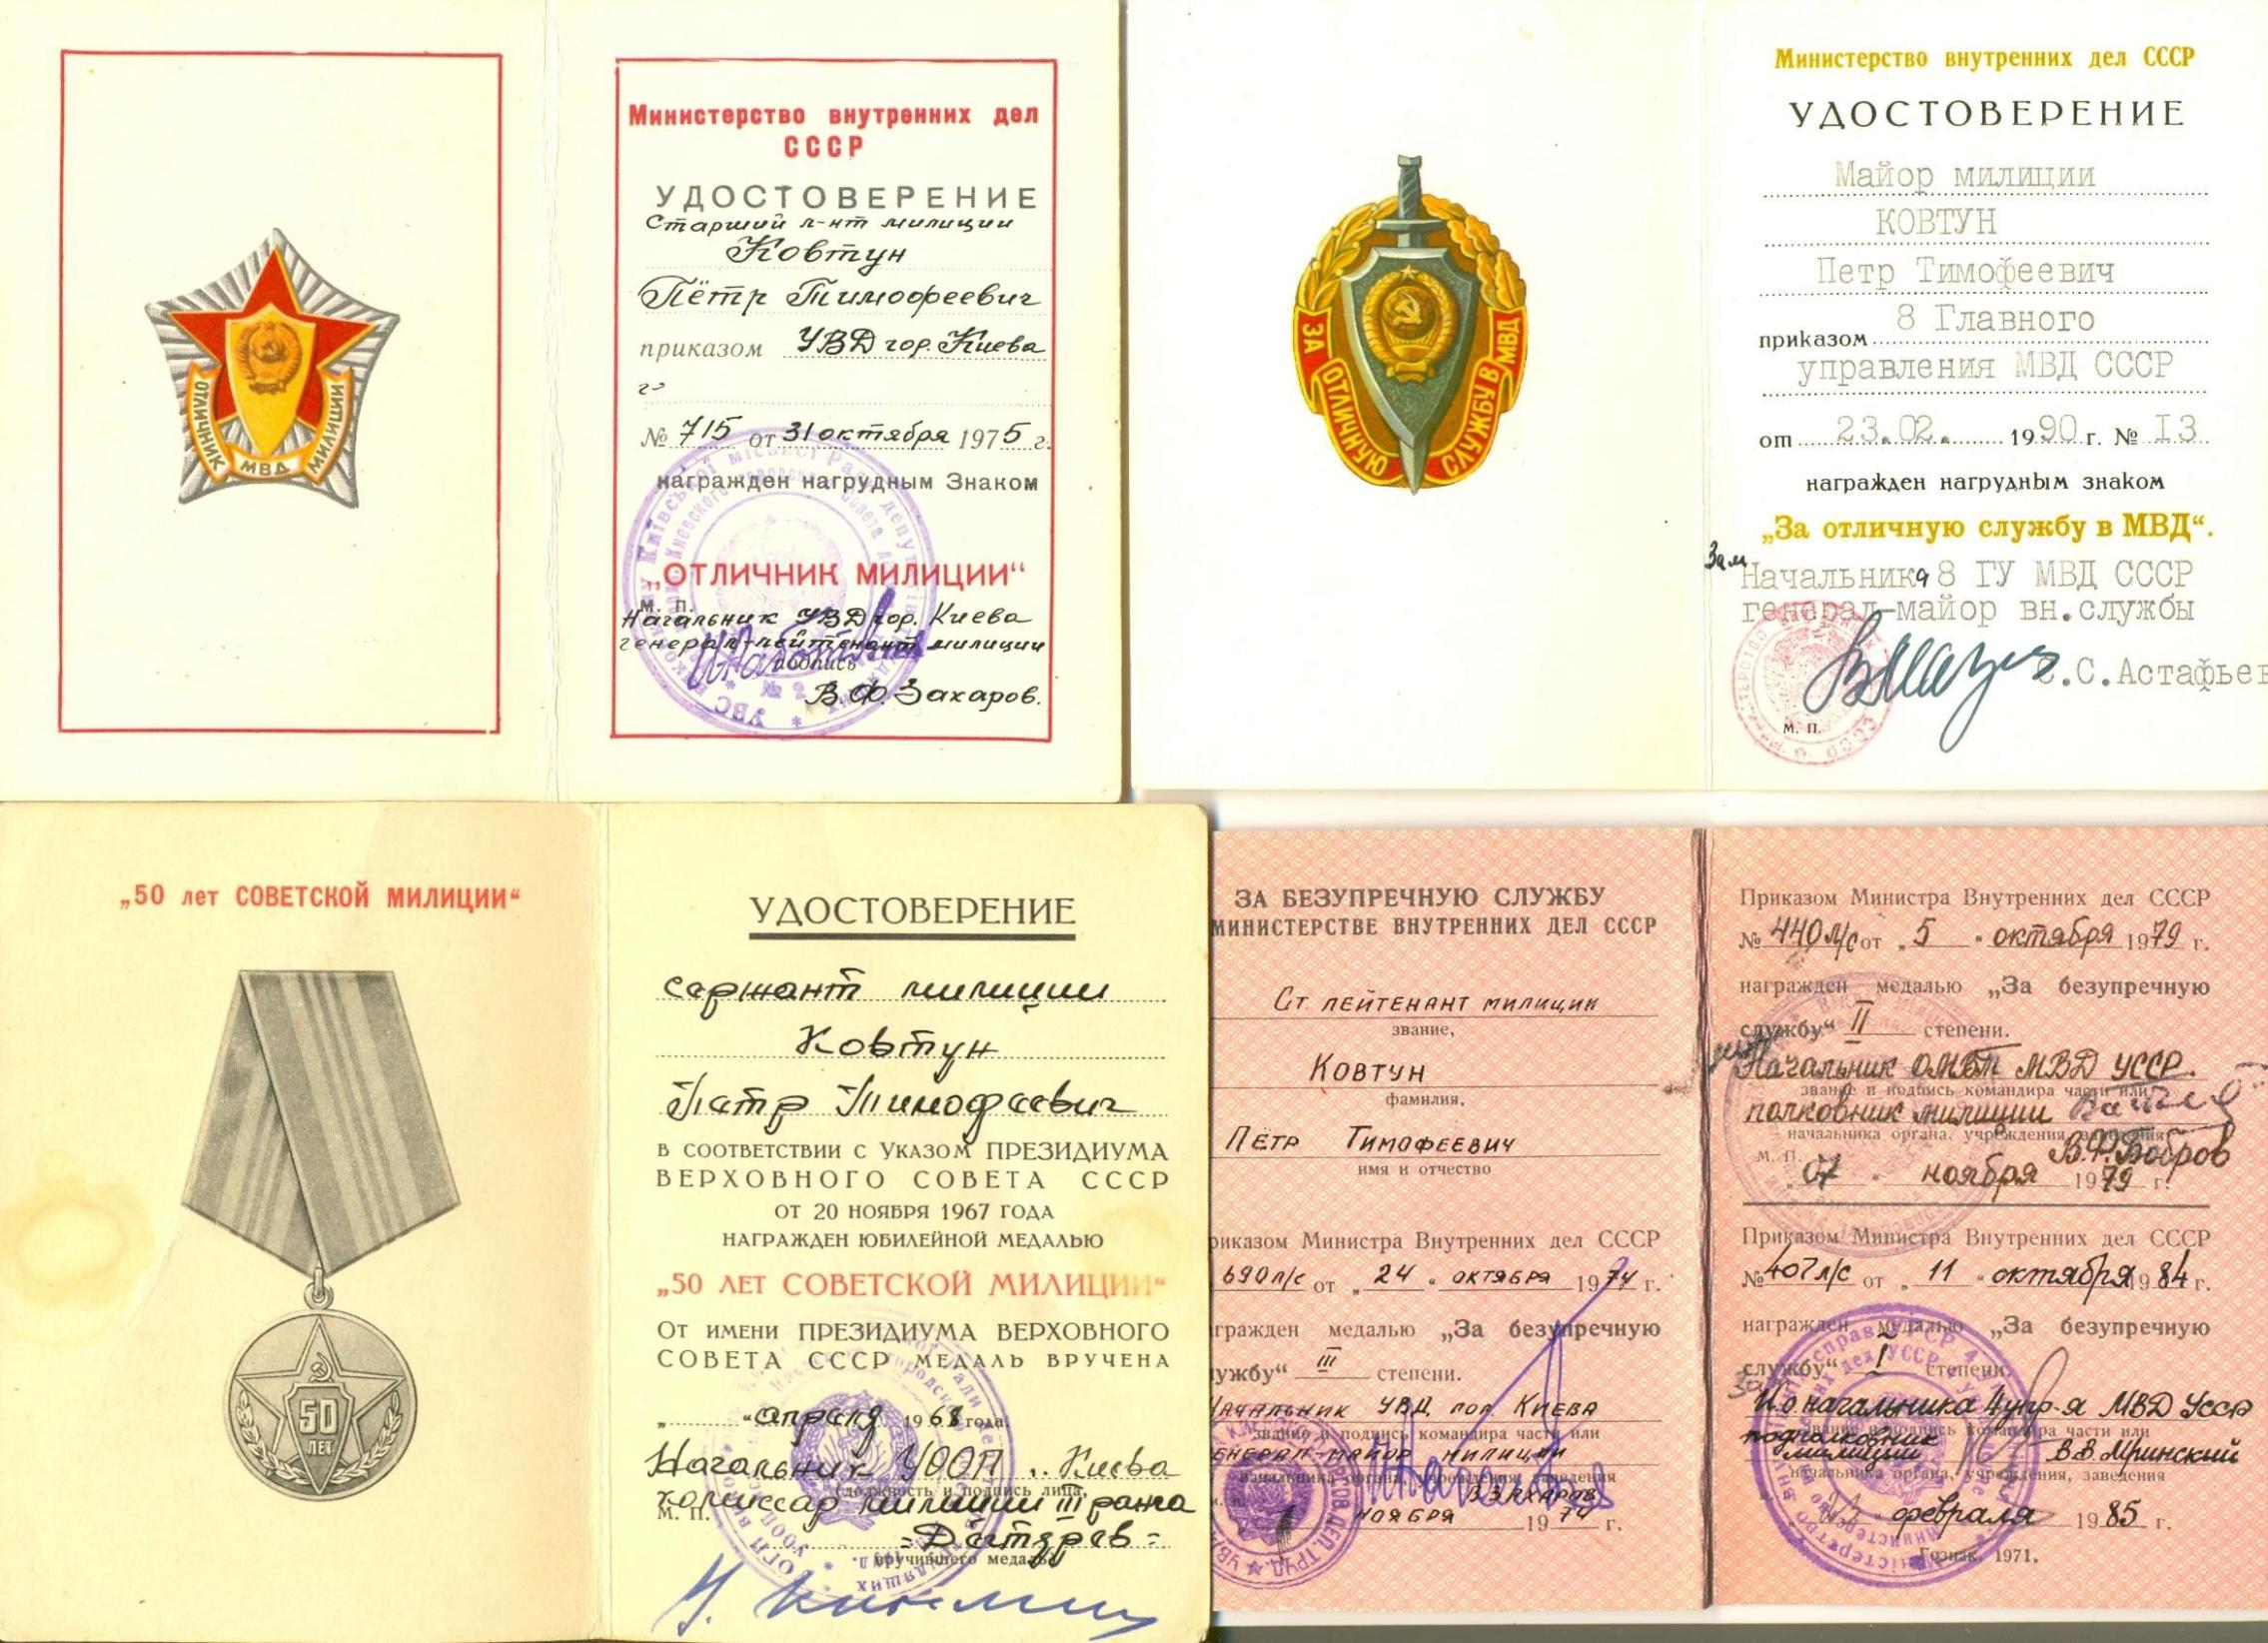 Министерство внутренних дел
СССР
УДОСТОВЕРЕНИЕ
Старший л-нт милиции
Ковтун
Пётр Тимофеевич
приказом УВД гор. Киева
№ 715 от 31 октября 1975 г.
награжден нагрудным Знаком
„ОТЛИЧНИК МИЛИЦИИ“
м. п.
Начальник УВД гор. Киева
генерал-лейтенант милиции
подпись
В.Ф. Захаров.
ОТЛИЧНИК МВД МИЛИЦИИ
Министерство внутренних дел СССР
УДОСТОВЕРЕНИЕ
Майор милиции
КОВТУН
Петр Тимофеевич
приказом 8 Главного
управления МВД СССР
от 23.02. 1990 г. № I3
награжден нагрудным знаком
„За отличную службу в МВД“.
Зам
Начальника 8 ГУ МВД СССР
генерал-майор вн.службы
С.Астафьев
м. п.
ЗА ОТЛИЧНУЮ СЛУЖБУ В МВД
„50 лет СОВЕТСКОЙ МИЛИЦИИ“
50
ЛЕТ
УДОСТОВЕРЕНИЕ
сержант милиции
Ковтун
Петр Тимофеевич
В СООТВЕТСТВИИ С УКАЗОМ ПРЕЗИДИУМА
ВЕРХОВНОГО СОВЕТА СССР
ОТ 20 НОЯБРЯ 1967 ГОДА
НАГРАЖДЕН ЮБИЛЕЙНОЙ МЕДАЛЬЮ
„50 ЛЕТ СОВЕТСКОЙ МИЛИЦИИ“
ОТ ИМЕНИ ПРЕЗИДИУМА ВЕРХОВНОГО
СОВЕТА СССР МЕДАЛЬ ВРУЧЕНА
„ “ апреля 1968 года
Начальник УООП г. Киева
(должность и подпись лица,
комиссар милиции III ранга
М. П.
=Дегтярев=
вручившего медаль)
ЗА БЕЗУПРЕЧНУЮ СЛУЖБУ
МИНИСТЕРСТВЕ ВНУТРЕННИХ ДЕЛ СССР
Ст. лейтенант милиции
звание,
Ковтун
фамилия,
Пётр Тимофеевич
имя и отчество
риказом Министра Внутренних дел СССР
690 л/с от „24“ октября 1974 г.
гражден медалью „За безупречную
ужбу“ III степени.
Начальник УВД гор. Киева
звание и подпись командира части или
генерал-майор милиции
начальника органа, учреждения, заведения
В. Захаров
ноября 1974 г.
Приказом Министра Внутренних дел СССР
№ 440 л/с от „5“ октября 1979 г.
награжден медалью „За безупречную
службу“ II степени.
Начальник ОМБП МВД УССР.
звание и подпись командира части или
полковник милиции
начальника органа, учреждения, заведения
м. п.
В.Ф. Бобров
„07“ ноября 1979 г.
Приказом Министра Внутренних дел СССР
№ 407 л/с от „11“ октября 1984 г.
награжден медалью „За безупречную
службу“ I степени.
И.о. начальника 4 упр-я МВД УССР
звание и подпись командира части или
подполковник
милиции
В.В. Мринский
начальника органа, учреждения, заведения
февраля 1985 г.
Гознак. 1971.